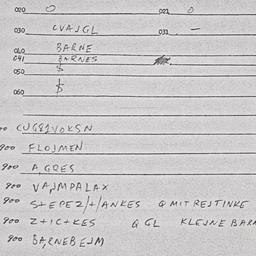 020 0 021 0
030 CVAJGL 031 —
040 BARNE
041 BARNES
050 $
060 $
CUG81VOKSN
900 FLOJMEN
900 AGRES
900 VAJMPALAX
900 S+EPEZ/+/ANKES Q MIT REJTINKE
900 Z+IC+KES Q GL KLEJNE BARN
900 BARNEBEJM